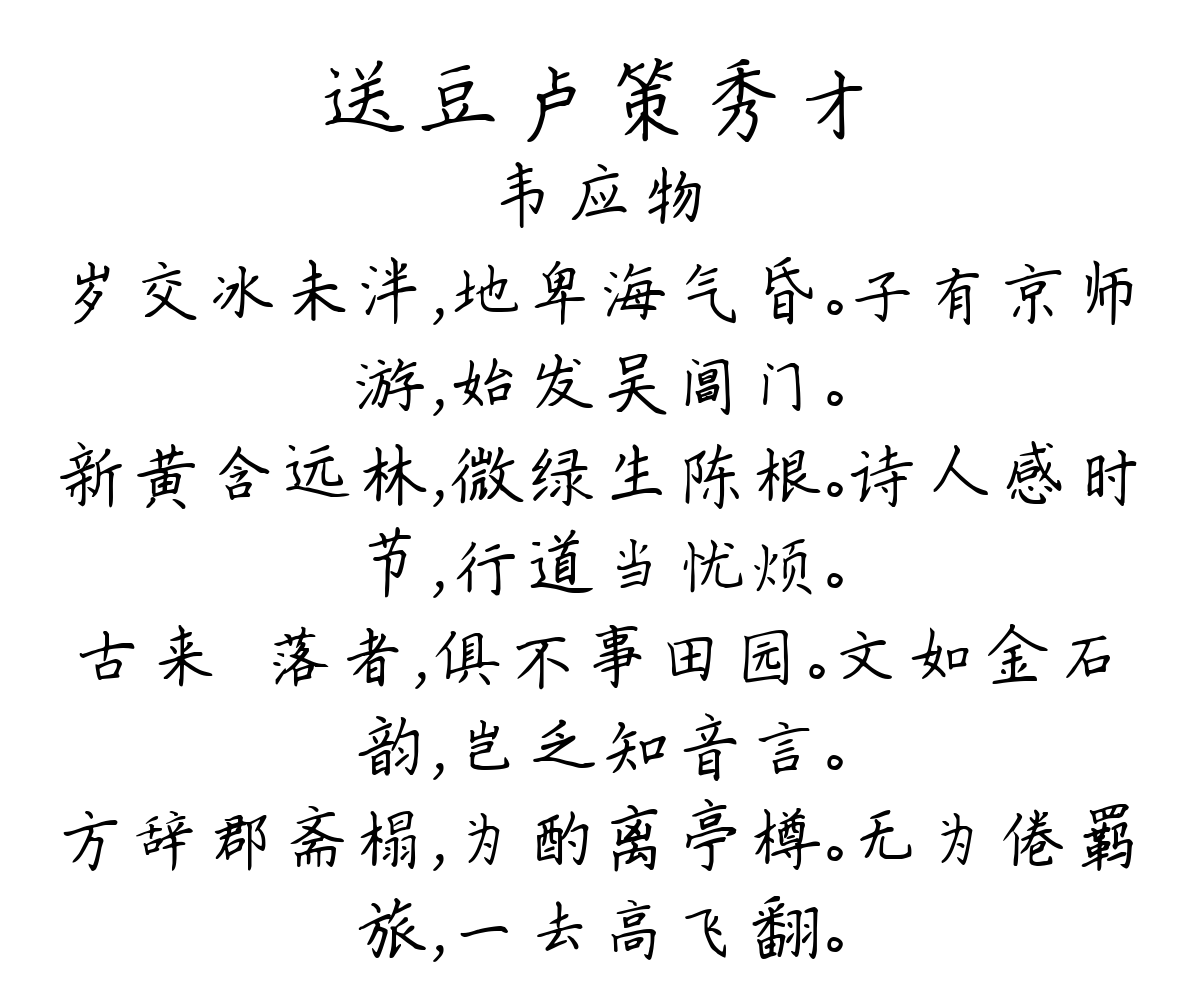 送豆卢策秀才
韦应物
岁交冰未泮,地卑海气昏。子有京师
游,始发吴阊门。
新黄含远林,微绿生陈根。诗人感时
节,行道当忧烦。
古来 落者,俱不事田园。文如金石
韵,岂乏知音言。
方辞郡斋榻,为酌离亭樽。无为倦羁
旅,一去高飞翻。